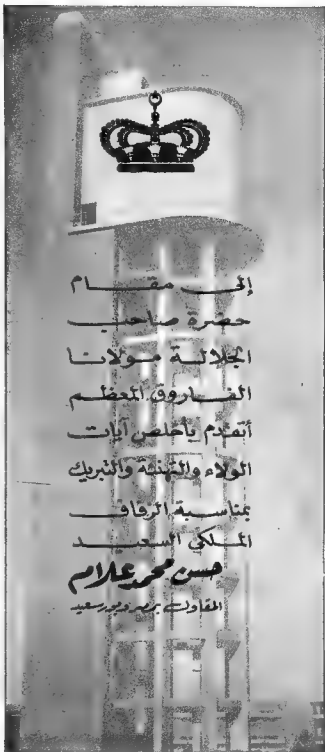 إلى مقام
حضرة صاحب
الجلالة مولانا
الفاروق المعظم
أتقدم بأخلص آيات
الولاء والتهنئة والتبريك
بمناسبة الزفاف
الملكي السعيد
حسن محمد علام
المقاول بمصر وبورسعيد